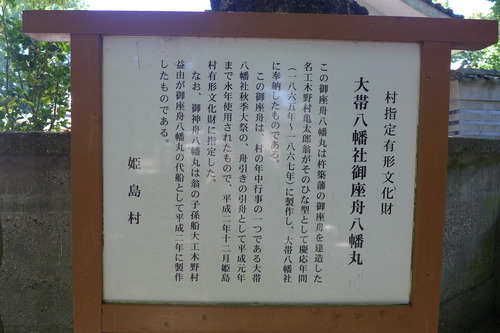 村指定有形文化財
大帯八幡社御座舟八幡丸
この御座舟八幡丸は杵築藩の御座舟を建造した
名工木野村亀太郎翁がそのひな型として慶応年間
(一八六五年~一八六七年)に製作し、大帯八幡社
に奉納したものである。
この御座舟は、村の年中行事の一つである大帯
八幡社秋季大祭の、舟引きの引舟として平成元年
まで永年使用されたもので、平成二年十二月姫島
村有形文化財に指定した。
なお、御神舟八幡丸は翁の子孫船大工木野村
益由が御座舟八幡丸の代船として平成二年に製作
したものである。
姫島村